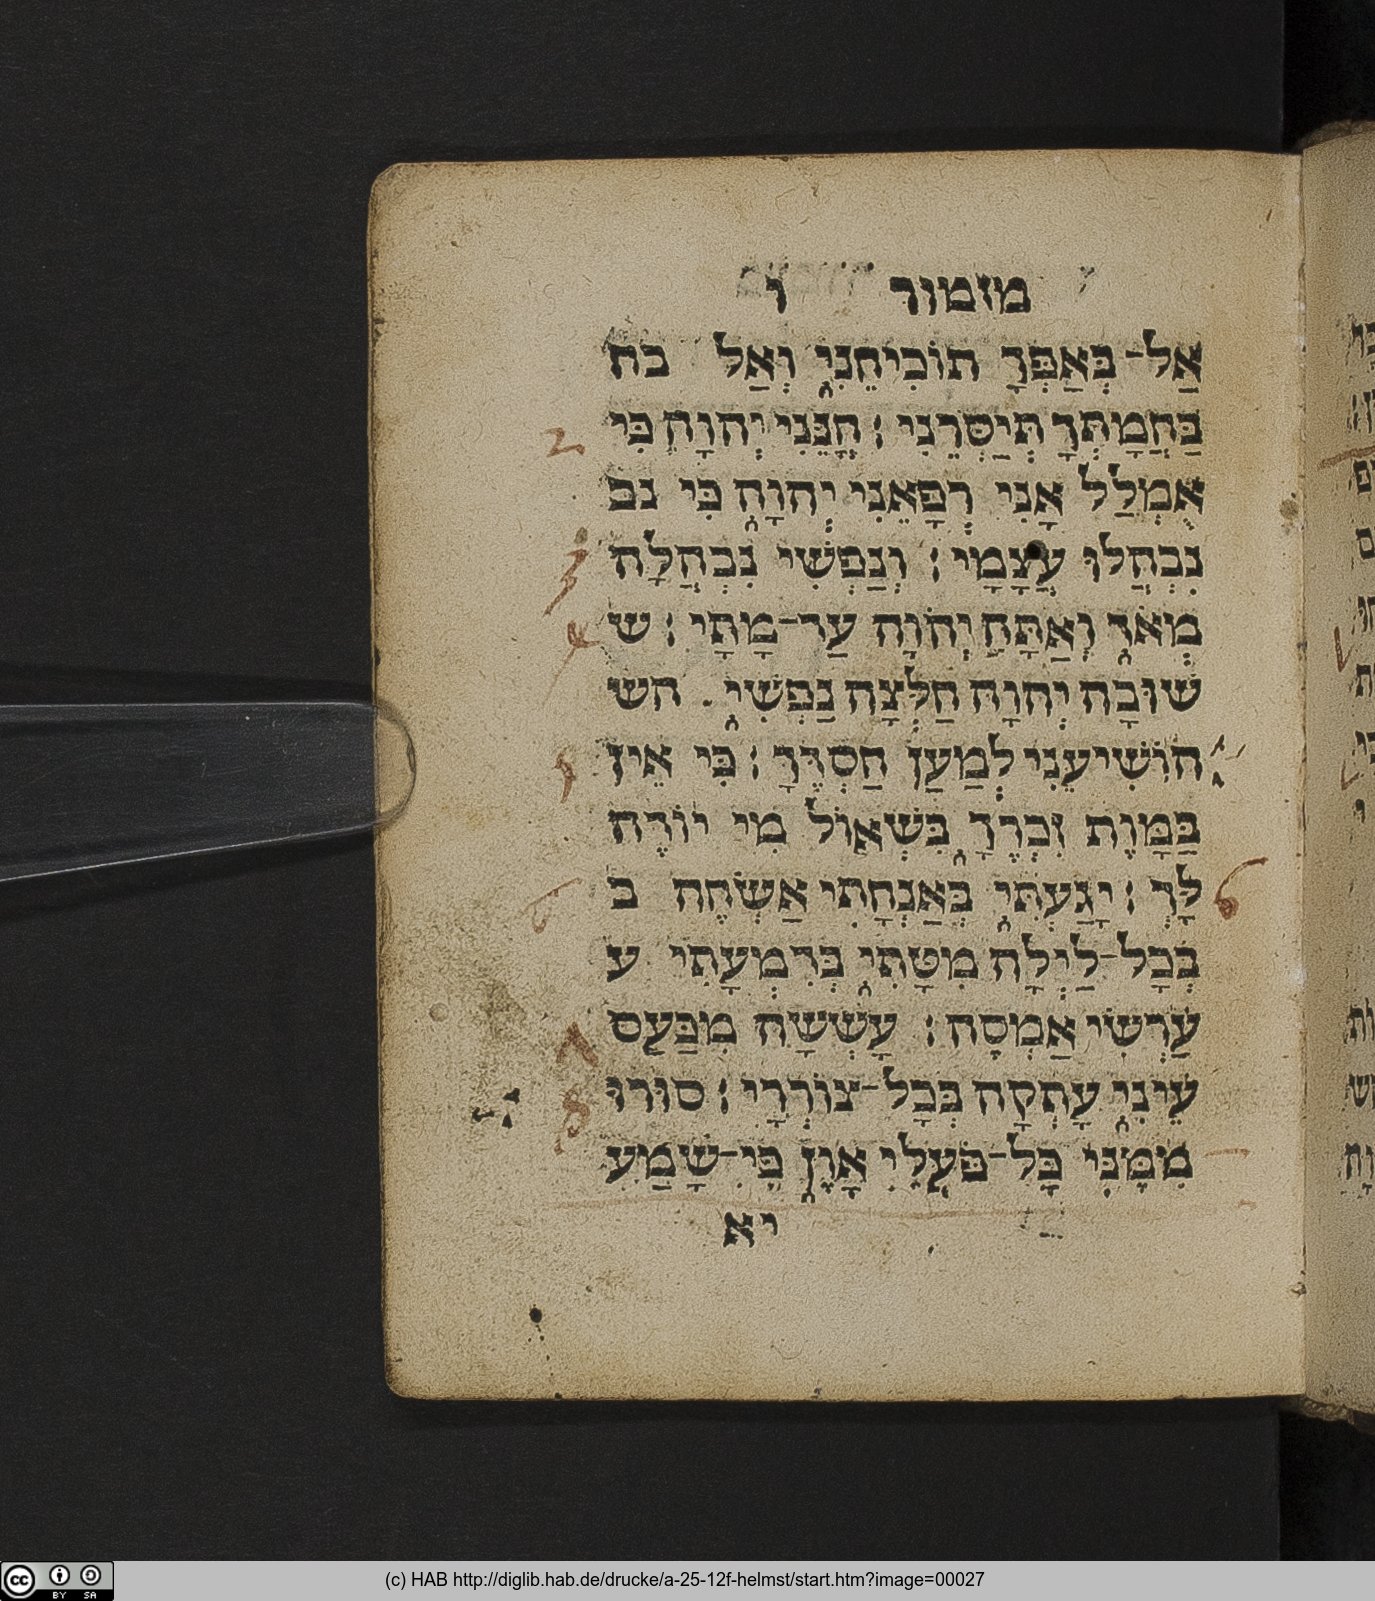 מזמור ו
אַל־בְּאַפְּךָ תוֹכִיחֵנִי וְאַל בח
בַּחֲמָתְךָ תְיַסְּרֵנִי׃ חָנֵּנִי יְהוָה כִּי
אֻמְלַל אָנִי רְפָאֵנִי יְהוָה כִּי נב
נִבְהֲלוּ עֲצָמָי׃ וְנַפְשִׁי נִבְהֲלָה
מְאֹד וְאַתָּה יְהוָה עַד־מָתָי׃ ש
שׁוּבָה יְהוָה חַלְּצָה נַפְשִׁי הש
הוֹשִׁיעֵנִי לְמַעַן חַסְדֶּךָ׃ כִּי אֵין
בַּמָּוֶת זִכְרֶךָ בִּשְׁאוֹל מִי יוֹדֶה
לָּךְ׃ יָגַעְתִּי בְּאַנְחָתִי אַשְׂחֶה ב
בְכָל־לַיְלָה מִטָּתִי בְּדִמְעָתִי ע
עַרְשִׂי אַמְסֶה׃ עָשְׁשָׁה מִכַּעַס
עֵינִי עָתְקָה בְּכָל־צוֹרְרָי׃ סוּרוּ
מִמֶּנִּי כָּל־פֹּעֲלֵי אָוֶן כִּי־שָׁמַע
יא
(c) HAB http://diglib.hab.de/drucke/a-25-12f-helmst/start.htm?image=00027
cc BY SA